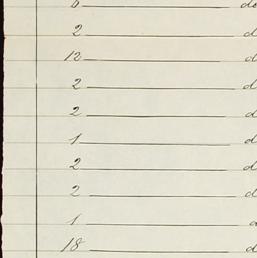 2 d
12 d
2 d
2 d
1 d
2 d
2 d
1 d
18 d